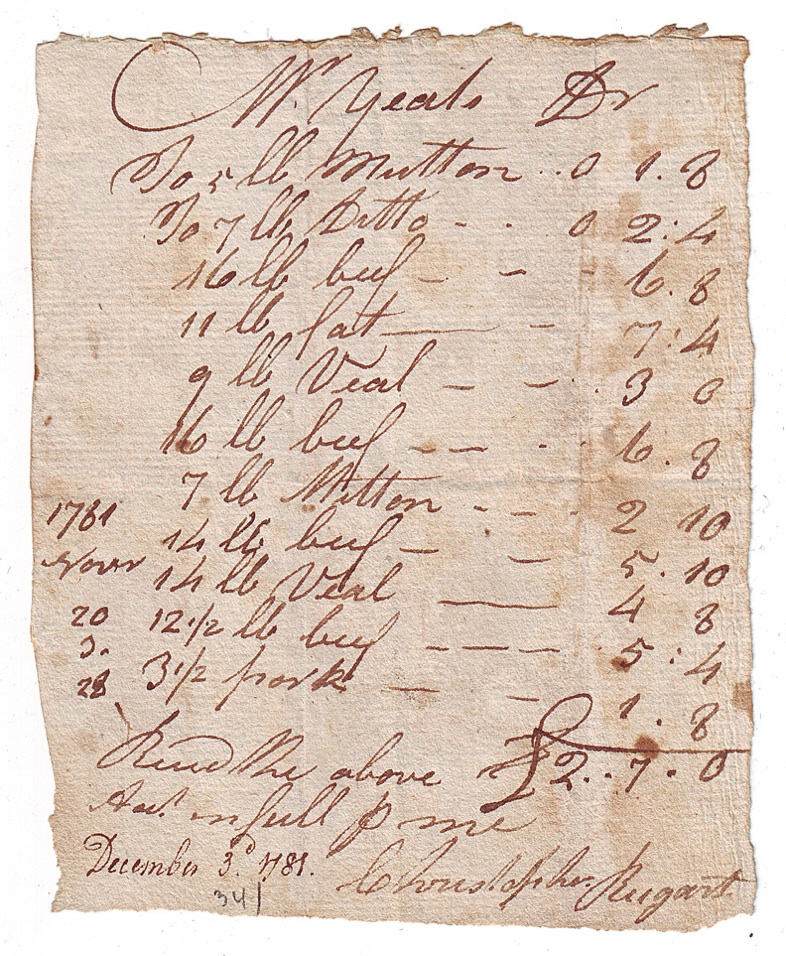 Mr Yeats Dr
To 5 lb Mutton .. 0 1. 8
To 7 lb Ditto - . 0 2: 4
16 lb beef - - - 6. 8
11 lb fat — - 7: 4
9 lb Veal - - .. 3 0
16 lb beef - - - . 6. 8
7 lb Mutton - - - 2 10
1781 14 lb beef - - 5. 10
Novr 14 lb Veal — 4 8
20 12 1/2 lb beef - - - - 5: 4
3.
28 3 1/2 pork - - 1. 8
Recd the above £2.. 7. 0
Acct. in full p me
December 3.d 1781. Christopher Rugart
341